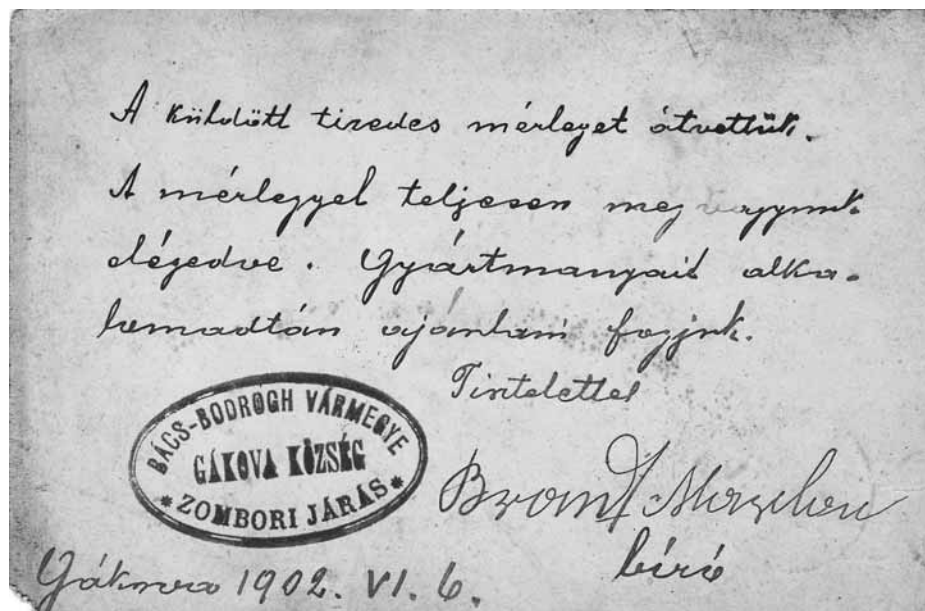 A küldött tizedes mérleget átvettük.
A mérleggel teljesen meg vagyunk
elégedve. Gyártmányait alka-
lomadtán ajánlani fogjuk.
Tisztelettel
BÁCS-BODROGH VÁRMEGYE
GÁKOVA KÖZSÉG
* ZOMBORI JÁRÁS *
Brand
bíró
Gákova 1902. VI. 6.